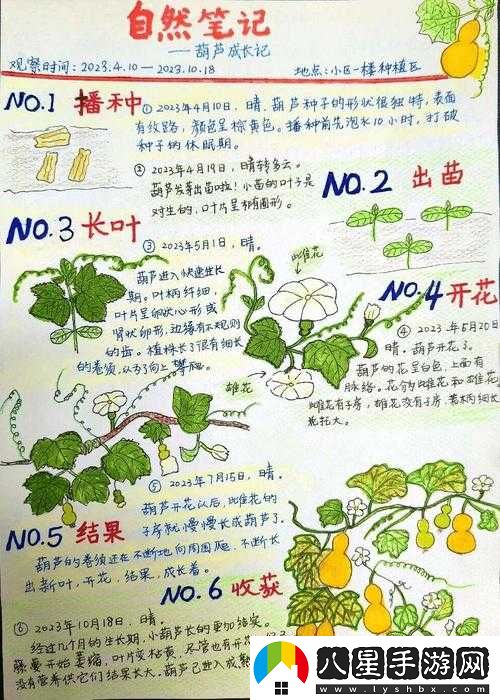 自然笔记
——葫芦成长记
观察时间：2023.4.10—2023.10.18
地点：小区一楼种植区
NO.1 播种
① 2023年4月10日，晴。葫芦种子的形状很独特，表面
有纹路，颜色呈棕黄色。播种前先泡水10小时，打破
种子的休眠期。
② 2023年4月19日，晴转多云。
葫芦发芽出苗啦！小苗的叶子是
对生的，叶片呈卵圆形。
NO.2 出苗
NO.3 长叶
③ 2023年5月1日，晴。
葫芦进入快速生长
期。叶柄纤细，
叶片呈卵状心形或
肾状卵形，边缘有不规则
的齿。植株长了很有细长
的卷须，以利向上攀爬。
雌花
雄花
NO.4 开花
④ 2023年5月20日
晴。葫芦开花了。
葫芦的花呈白色，上面有
脉络。花分雌花和雄花
雌花有子房，雄花没有子房，花柄细长
光托大。
⑤ 2023年7月15日，晴。
葫芦开花以后，雌花的
子房就慢慢长成葫芦了。
NO.5 结果
葫芦的卷须还在不断地向周围爬，不断长
出新叶，开花，结果，成长着。
NO.6 收获
⑥ 2023年10月18日，晴。
经过几个月的生长期，小葫芦长的更加结实。
藤蔓开始萎缩，叶片变枯黄。尽管也有开花
没有营养供它们结果长大。葫芦已进入成熟
八星手游网
www.lyshbx.com